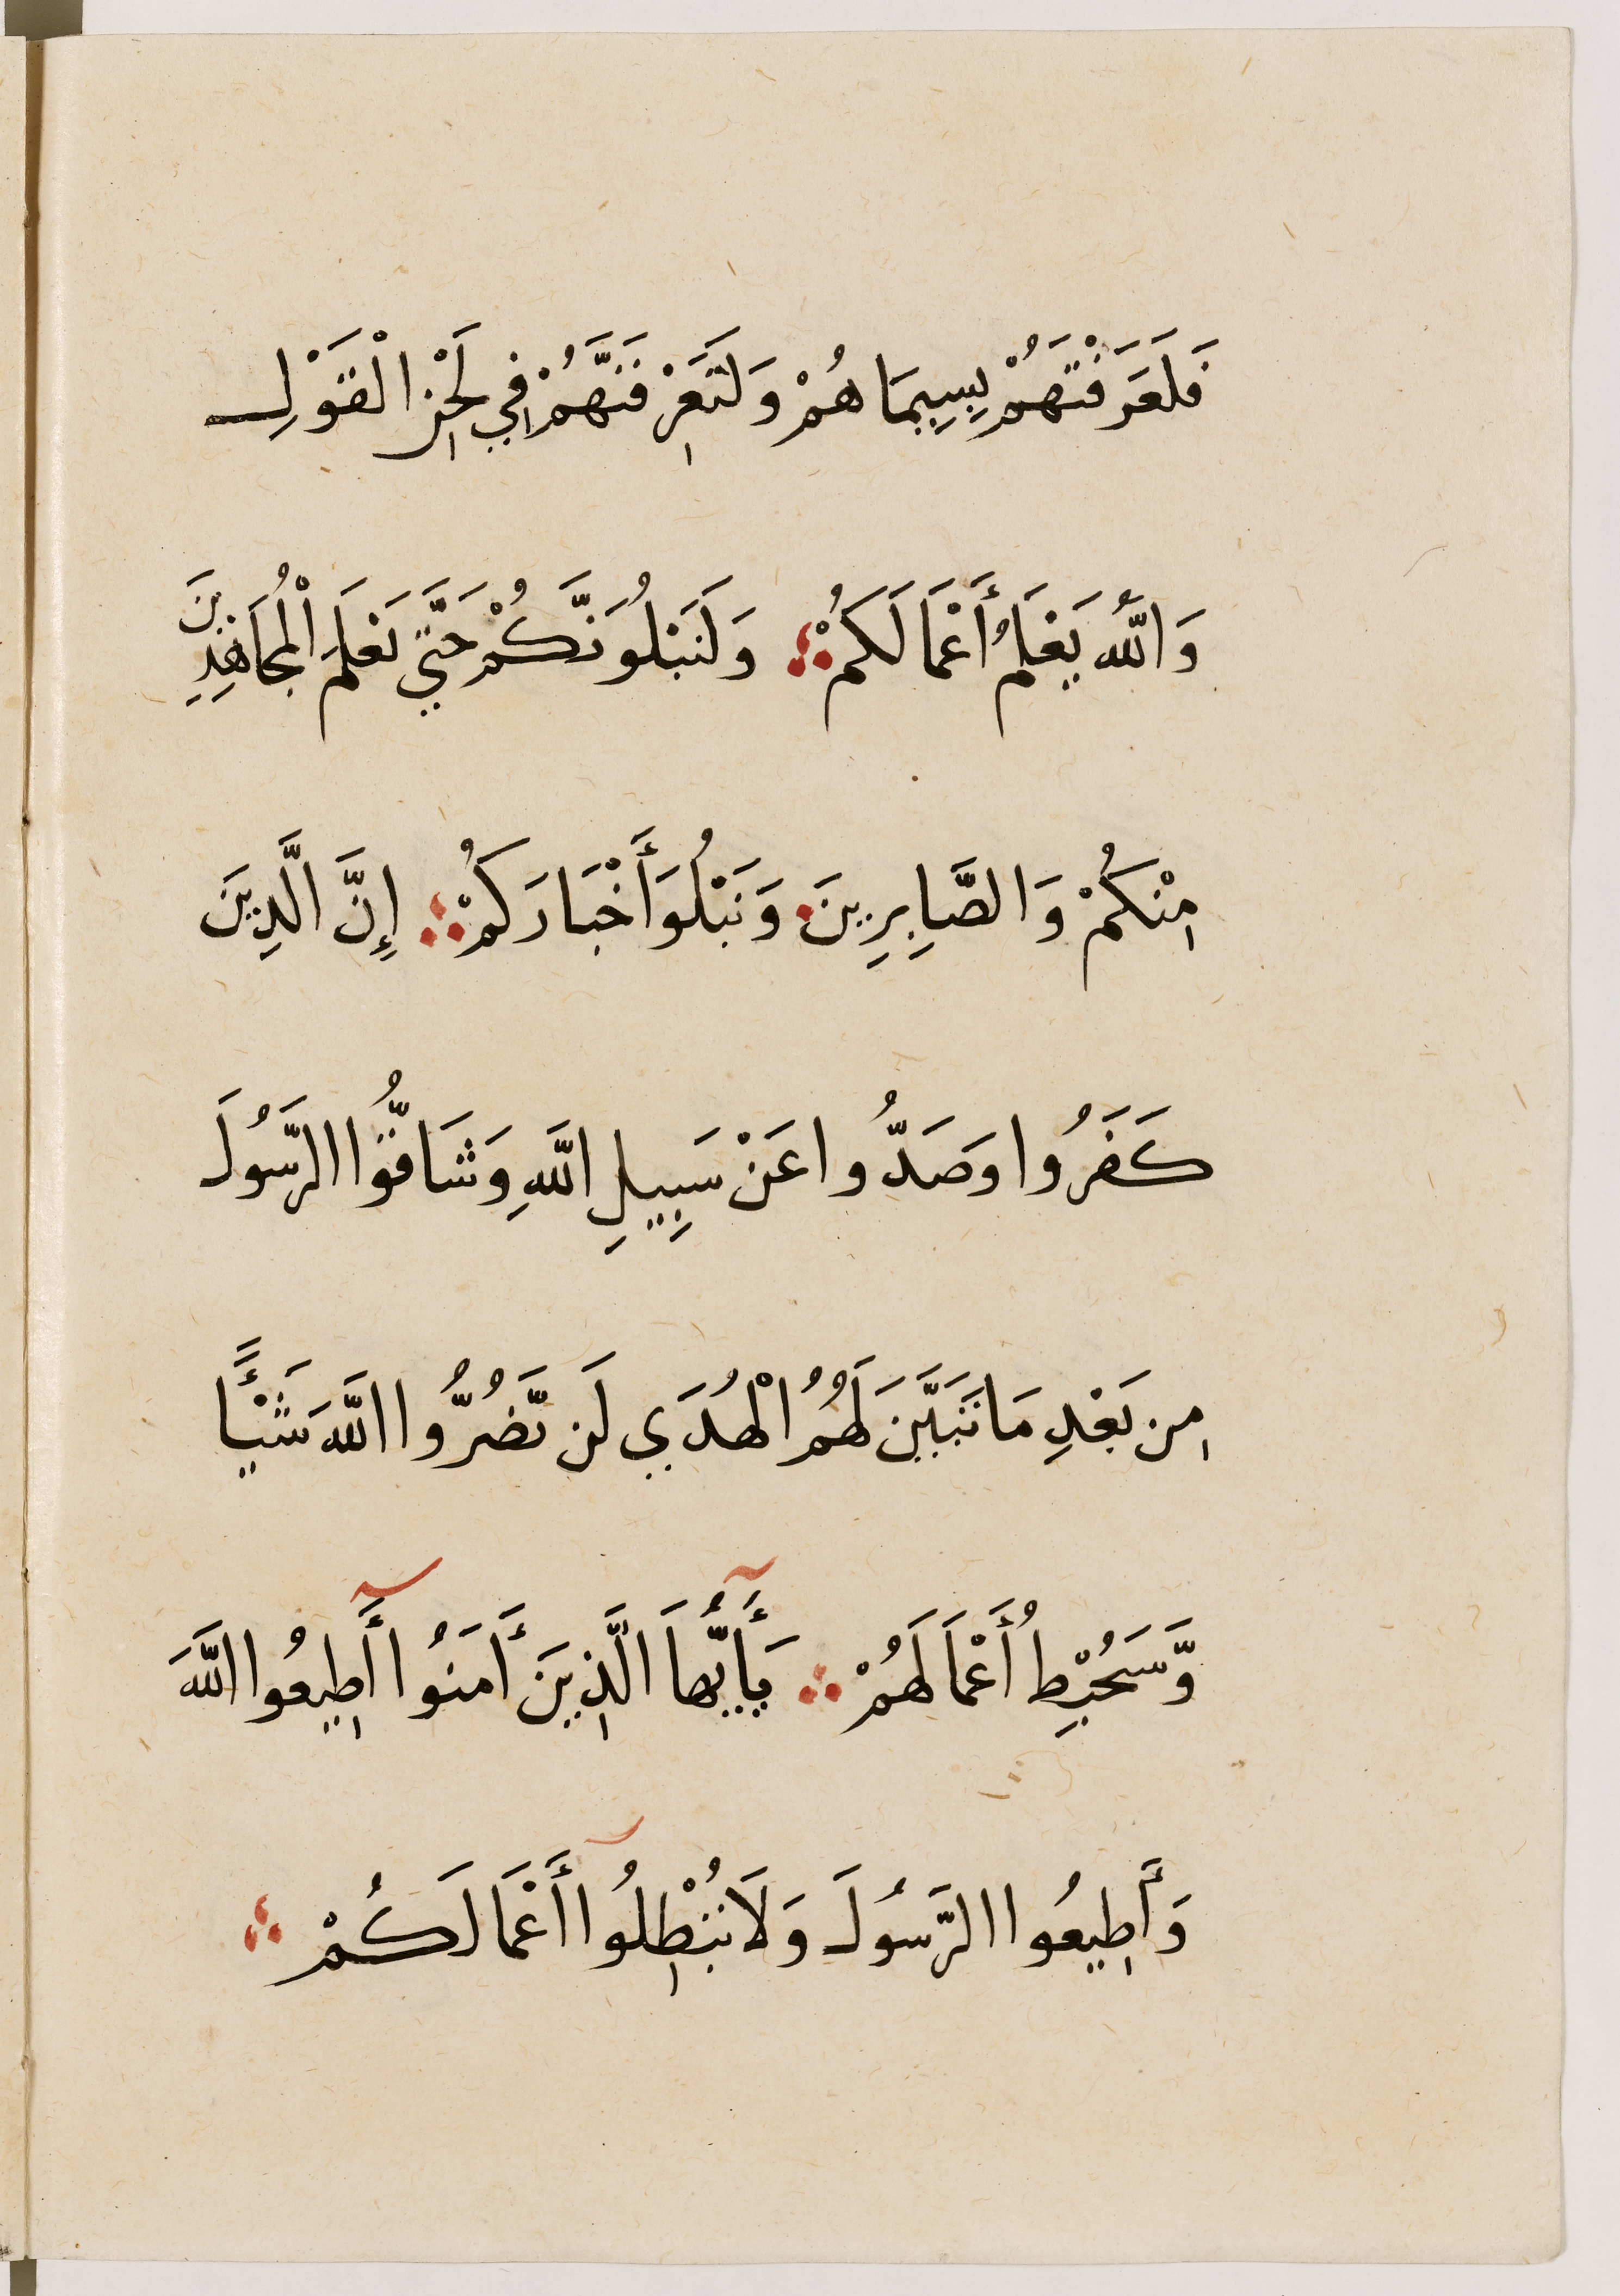 فَلَعَرَفْتَهُمْ بِسِيمَاهُمْ وَلَتَعْرِفَنَّهُمْ فِي لَحْنِ الْقَوْلِ
وَاللَّهُ يَعْلَمُ أَعْمَالَكُمْ ؞ وَلَنَبْلُوَنَّكُمْ حَتَّي نَعْلَمَ الْمُجَاهِدِينَ
مِنْكُمْ وَالصَّابِرِينَ وَنَبْلُوَ أَخْبَارَكُمْ ؞ إِنَّ الَّذِينَ
كَفَرُوا وَصَدُّوا عَنْ سَبِيلِ اللَّهِ وَشَاقُّوا الرَّسُولَ
مِن بَعْدِ مَا تَبَيَّنَ لَهُمُ الْهُدَي لَن يَّضُرُّوا اللَّهَ شَيْئًا
وَّسَيُحْبِطُ أَعْمَالَهُمْ ؞ يَأَيُّهَا الَّذِينَ أَمَنُوا أَطِيعُوا اللَّهَ
وَأَطِيعُوا الرَّسُولَ وَلَا تُبْطِلُوا أَعْمَالَكُمْ ؞